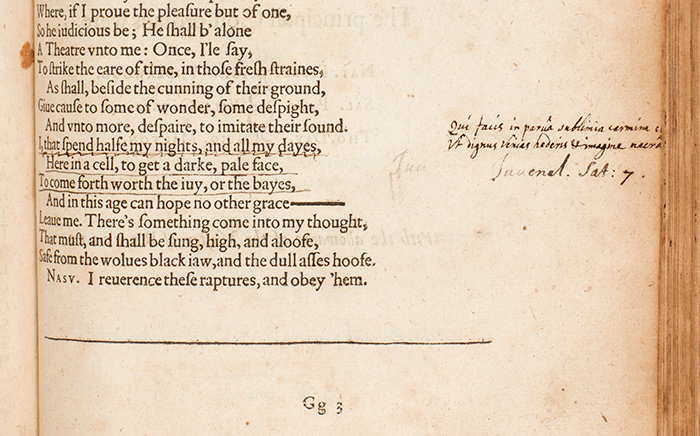 Where, if I proue the pleaſure but of one,
So he iudicious be; He ſhall b' alone
A Theatre vnto me: Once, I'le ſay,
To ſtrike the eare of time, in thoſe freſh ſtraines,
As ſhall, beſide the cunning of their ground,
Giue cauſe to ſome of wonder, ſome deſpight,
And vnto more, deſpaire, to imitate their ſound.
I, that ſpend halfe my nights, and all my dayes,
Here in a cell, to get a darke, pale face,
To come forth worth the iuy, or the bayes,
And in this age can hope no other grace——
Leaue me. There's ſomething come into my thought,
That muſt, and ſhall be ſung, high, and aloofe,
Safe from the wolues black iaw, and the dull aſſes hoofe.
NASV. I reuerence theſe raptures, and obey 'hem.
Qui facis in parua sublimia carmina
Vt dignus venias hederis & imagine macra
Juvenal. Sat: 7.
Gg 3